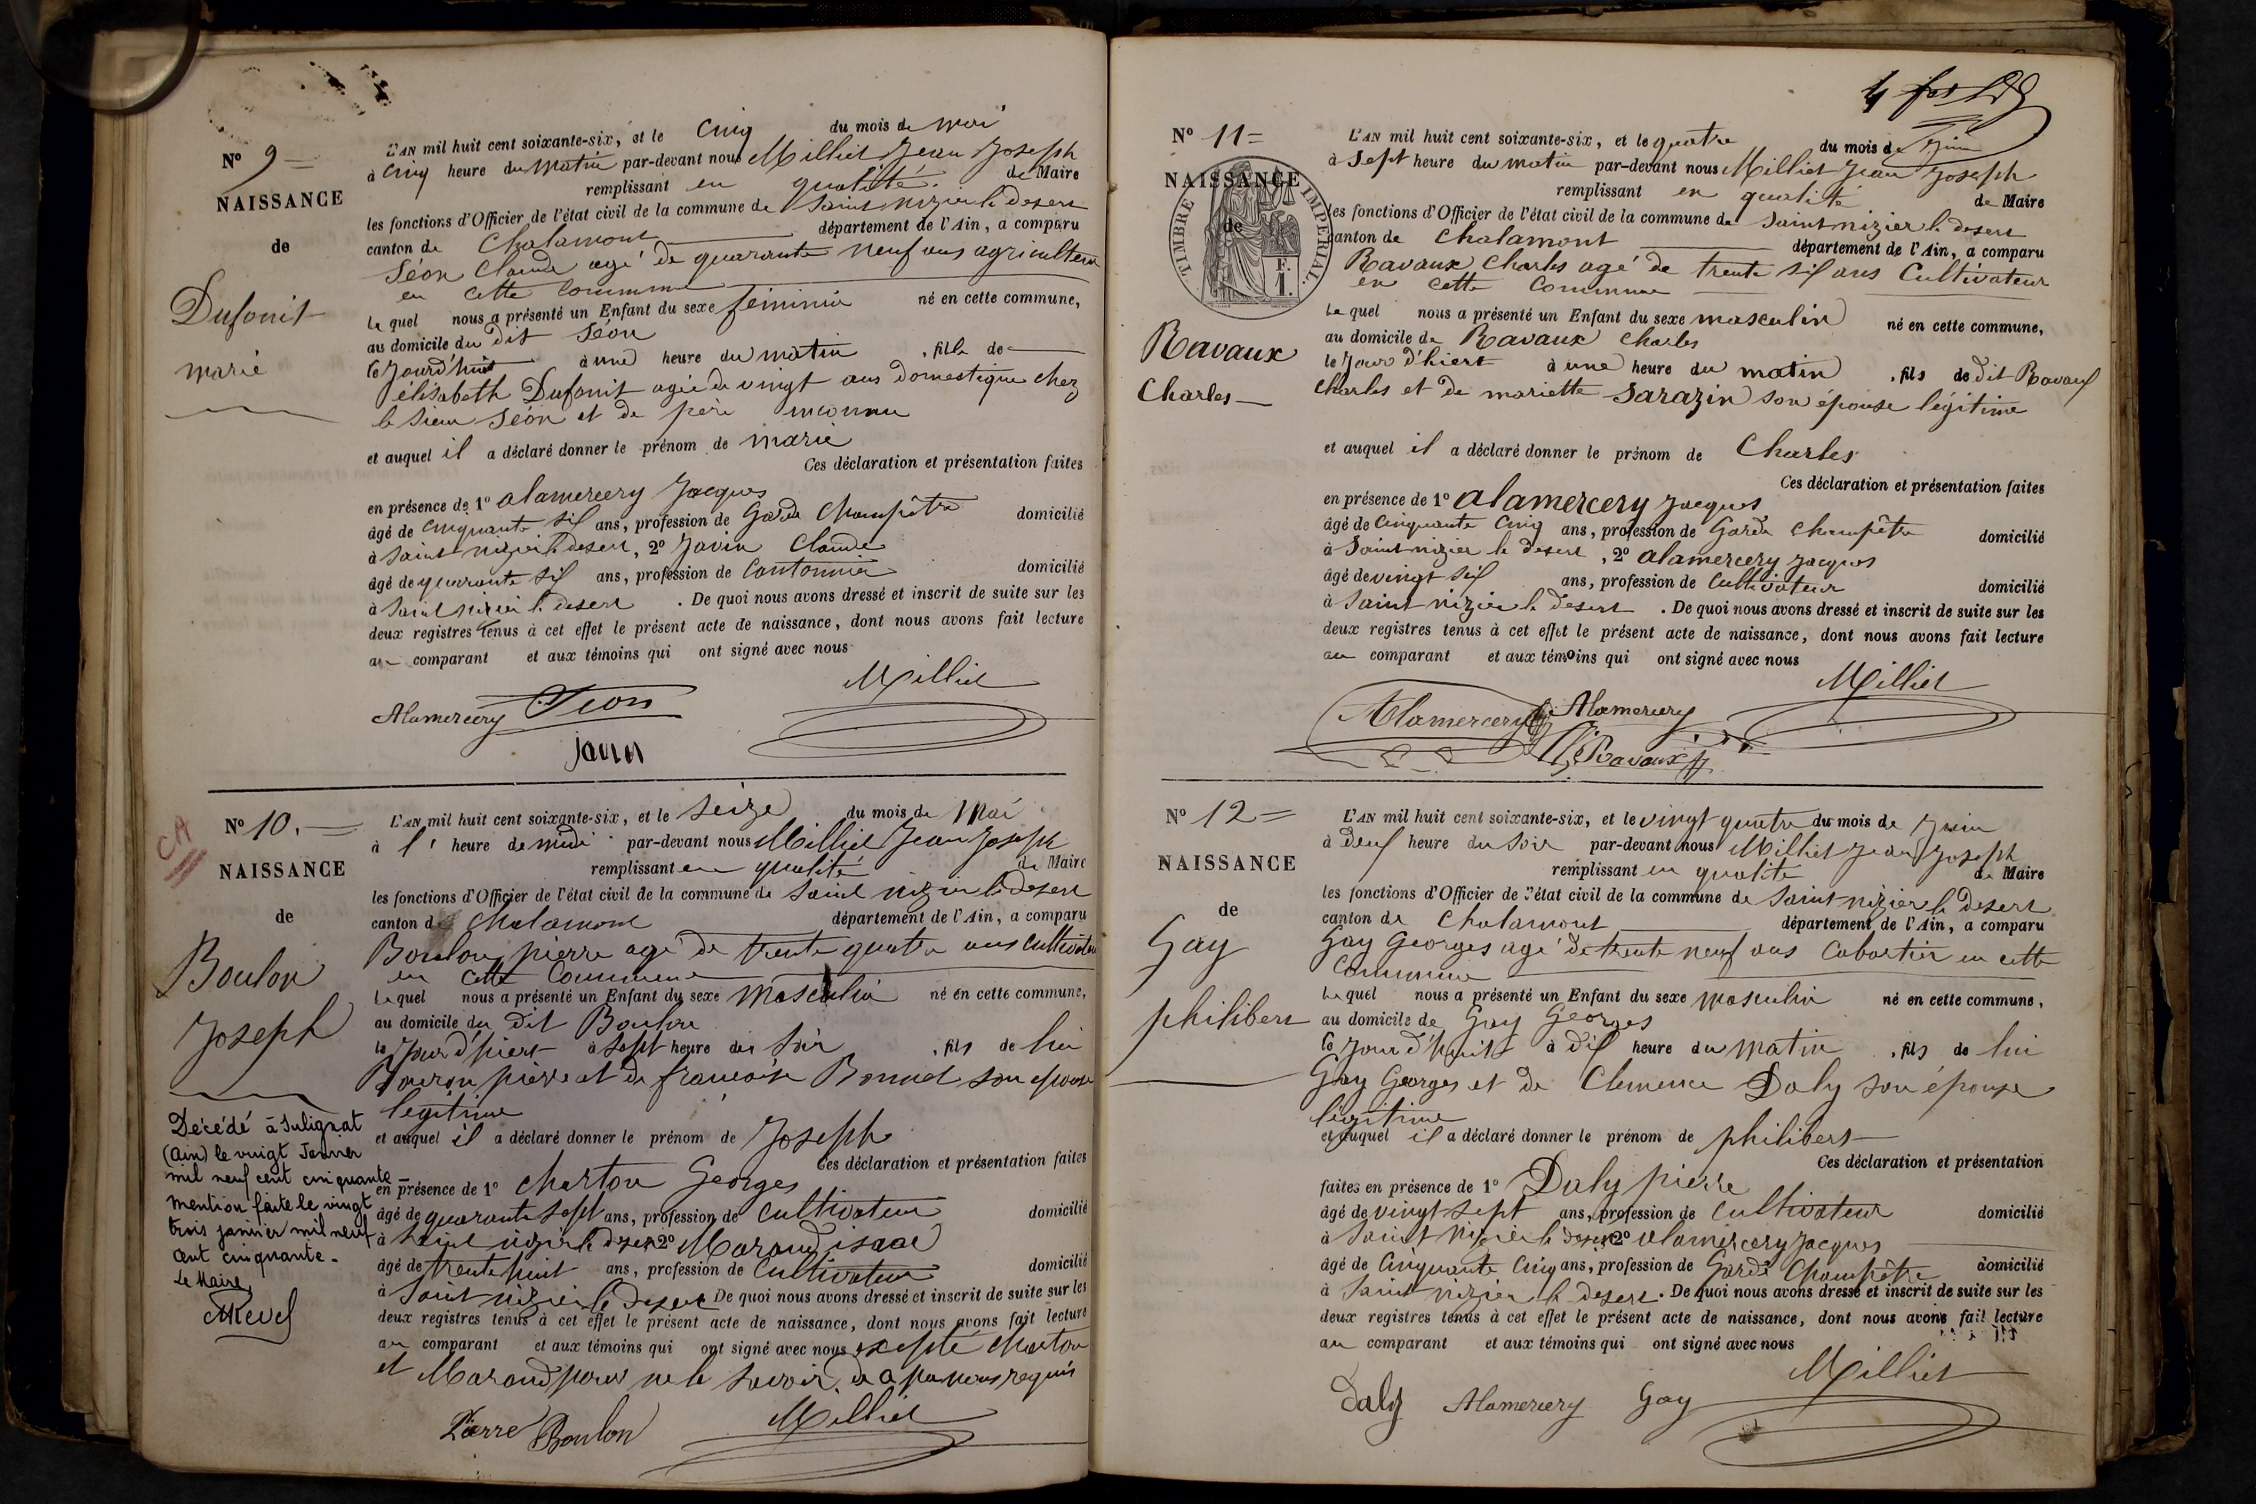 Nº 9
NAISSANCE
de
Dufonit
marie
L'AN mil huit cent soixante-six, et le cinq du mois de mai
à cinq heure du matin par-devant nous Milliet Jean Joseph
remplissant en qualité de Maire
les fonctions d'Officier de l'état civil de la commune de Saint nizier le desert
canton de Chalamont département de l'Ain, a comparu
Séon Claude agé de quarante neuf ans agriculteur
en cette commune
le quel nous a présenté un Enfant du sexe féminin né en cette commune,
au domicile du dit Séon
le jourd'hui à une heure du matin , fille de
élisabeth Dufonit agée de vingt ans domestique chez
le sieur Séon et de père inconnu
et auquel il a déclaré donner le prénom de marie
Ces déclaration et présentation faites
en présence de 1º alamercery Jacques
âgé de cinquante six ans, profession de Garde Champêtre domicilié
à Saint nizier le desert, 2º Janin Claude
âgé de quarante six ans, profession de Cantonnier domicilié
à Saint nizier le desert . De quoi nous avons dressé et inscrit de suite sur les
deux registres tenus à cet effet le présent acte de naissance, dont nous avons fait lecture
au comparant et aux témoins qui ont signé avec nous
Milliet
Alamercery Séon
janin
Nº 10.
CA
NAISSANCE
de
Boulon
Joseph
Décédé à Sulignat
(Ain) le vingt Janvier
mil neuf cent cinquante
mention faite le vingt
trois janvier mil neuf
cent cinquante.
Le Maire
L'AN mil huit cent soixante-six, et le seize du mois de Mai
à l' heure de midi par-devant nous Milliet Jean Joseph
remplissant en qualité de Maire
les fonctions d'Officier de l'état civil de la commune de Saint nizier le desert
canton de Chalamont département de l'Ain, a comparu
Boulon pierre agé de trente quatre ans cultivateur
en cette Commune
le quel nous a présenté un Enfant du sexe masculin né en cette commune,
au domicile du dit Boulon
le jour d'hiert à sept heure du soir , fils de lui
Boulon pierre et de françoise Bonnet son epouse
legitime
et auquel il a déclaré donner le prénom de Joseph
Ces déclaration et présentation faites
en présence de 1º charton Georges
âgé de quarante sept ans, profession de cultivateur domicilié
à Saint nizier le desert 2º Marand isaac
âgé de trente huit ans, profession de Cultivateur domicilié
à Saint nizier le desert De quoi nous avons dressé et inscrit de suite sur les
deux registres tenus à cet effet le présent acte de naissance, dont nous avons fait lecture
au comparant et aux témoins qui ont signé avec nous excepté charton
et Marand pour ne le savoir de a par nous requis
Milliet
Pierre Boulon
4
Nº 11
NAISSANCE
de
TIMBRE IMPERIAL.
F.
1.
Ravaux
Charles
L'AN mil huit cent soixante-six, et le quatre du mois de Juin
à sept heure du matin par-devant nous Milliet Jean Joseph
remplissant en qualité de Maire
les fonctions d'Officier de l'état civil de la commune de Saint nizier le desert
canton de Chalamont département de l'Ain, a comparu
Ravaux Charles agé de trente six ans Cultivateur
en cette Commune
le quel nous a présenté un Enfant du sexe masculin né en cette commune,
au domicile de Ravaux Charles
le jour d'hiert à une heure du matin , fils de dit Ravaux
charles et de mariette Sarazin son épouse légitime
et auquel il a déclaré donner le prénom de Charles
Ces déclaration et présentation faites
en présence de 1º alamercery Jacques
âgé de cinquante cinq ans, profession de Garde champêtre domicilié
à Saint nizier le desert , 2º alamercery jacques
âgé de vingt six ans, profession de Cultivateur domicilié
à Saint nizier le desert . De quoi nous avons dressé et inscrit de suite sur les
deux registres tenus à cet effet le présent acte de naissance, dont nous avons fait lecture
au comparant et aux témoins qui ont signé avec nous
Milliet
Alamercery Alamercery
Ravaux
Nº 12
NAISSANCE
de
Gay
philibert
L'AN mil huit cent soixante-six, et le vingt quatre du mois de Juin
à deux heure du soir par-devant nous Milliet Jean Joseph
remplissant en qualité de Maire
les fonctions d'Officier de l'état civil de la commune de Saint nizier le desert
canton de Chalamont département de l'Ain, a comparu
Gay Georges agé de trente neuf ans Cabartier en cette
Commune
le quel nous a présenté un Enfant du sexe masculin né en cette commune,
au domicile de Gay Georges
le jour d'huit à dix heure du matin , fils de lui
Gay Georges et de Clemence Daly son épouse
légitime
et auquel il a déclaré donner le prénom de philibert
Ces déclaration et présentation
faites en présence de 1º Daly pierre
âgé de vingt sept ans, profession de cultivateur domicilié
à Saint nizier le desert 2º alamercery Jacques
âgé de Cinquante Cinq ans, profession de Garde Champêtre domicilié
à Saint nizier le desert . De quoi nous avons dressé et inscrit de suite sur les
deux registres tenus à cet effet le présent acte de naissance, dont nous avons fait lecture
au comparant et aux témoins qui ont signé avec nous
Milliet
Daly Alamercery Gay